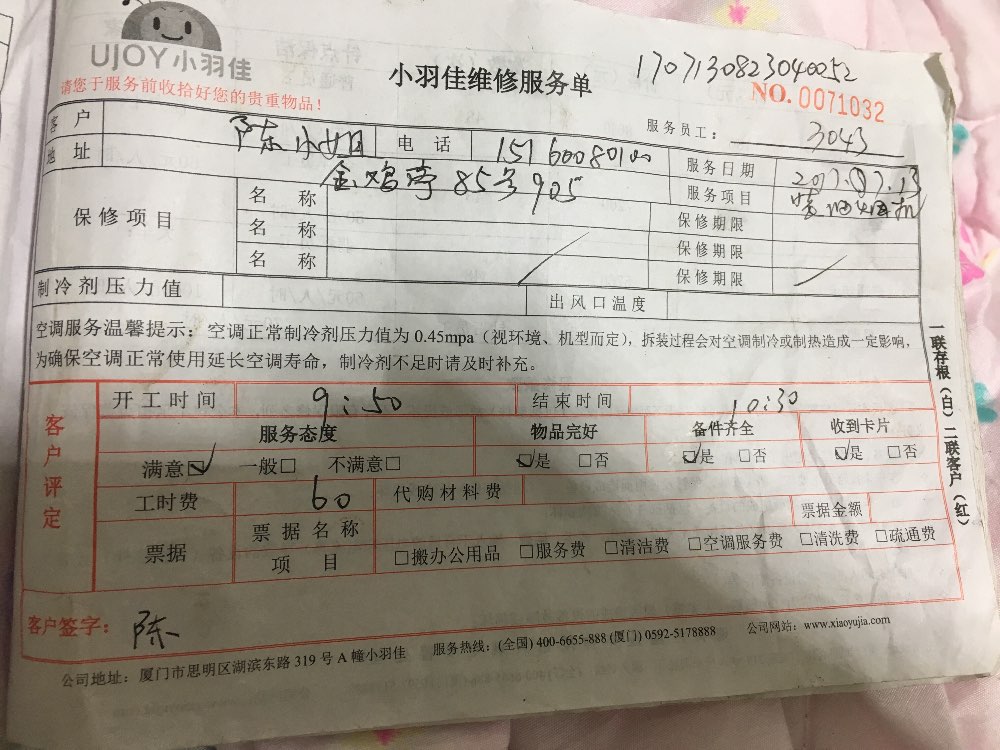 UJOY小羽佳
请您于服务前收拾好您的贵重物品！
小羽佳维修服务单
1707130823040052
NO. 0071032
服务员工： 3043
客户 陈小姐 电话
服务日期 2017.07.13
地址 金鸡亭85号905
服务项目
保修项目 名称 保修期限
名称 保修期限
名称 保修期限
制冷剂压力值 出风口温度
空调服务温馨提示：空调正常制冷剂压力值为0.45mpa（视环境、机型而定），拆装过程会对空调制冷或制热造成一定影响，
为确保空调正常使用延长空调寿命，制冷剂不足时请及时补充。
客户评定
开工时间 9:50 结束时间 10:30
服务态度 物品完好 备件齐全 收到卡片
满意☑ 一般□ 不满意□ ☑是 □否 ☑是 □否 ☑是 □否
工时费 60 代购材料费 票据金额
票据 票据名称
项目 □搬办公用品 □服务费 □清洁费 □空调服务费 □清洗费 □疏通费
客户签字： 陈
公司地址：厦门市思明区湖滨东路319号A幢小羽佳 服务热线：(全国) 400-6655-888 (厦门) 0592-5178888 公司网站：www.xiaoyujia.com
一联存根（白）二联客户（红）